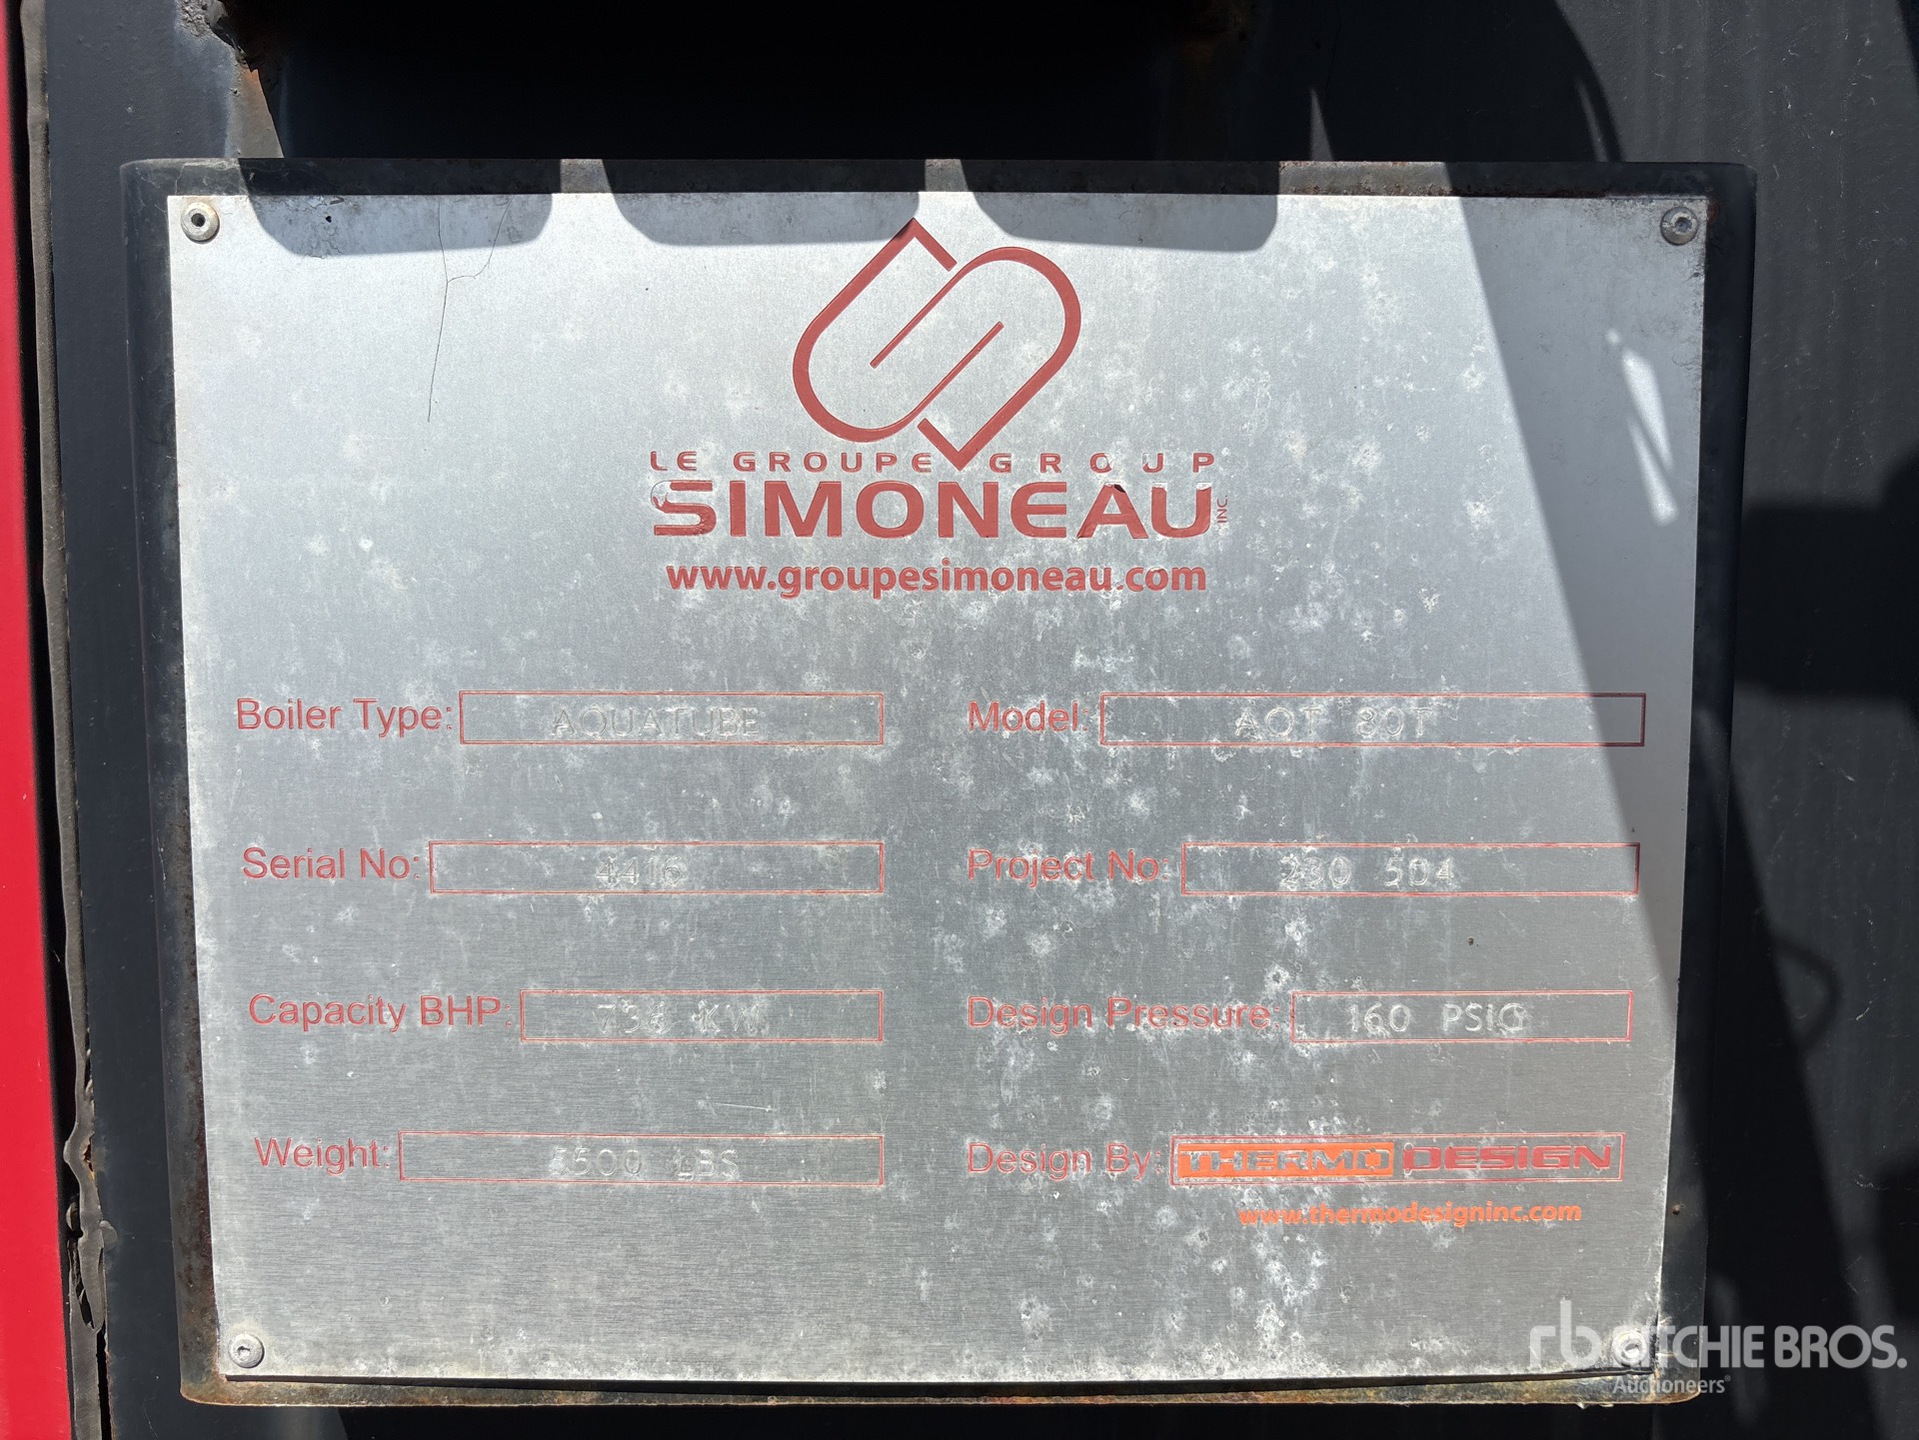 LE GROUPE GROUP
SIMONEAU INC.
www.groupesimoneau.com
Boiler Type: AQUATUBE Model: AQT 80T
Serial No: 4416 Project No: 230 504
Capacity BHP: KW Design Pressure: 160 PSIG
Weight: LBS Design By: THERMO DESIGN
www.thermodesigninc.com
rb RITCHIE BROS.
Auctioneers®